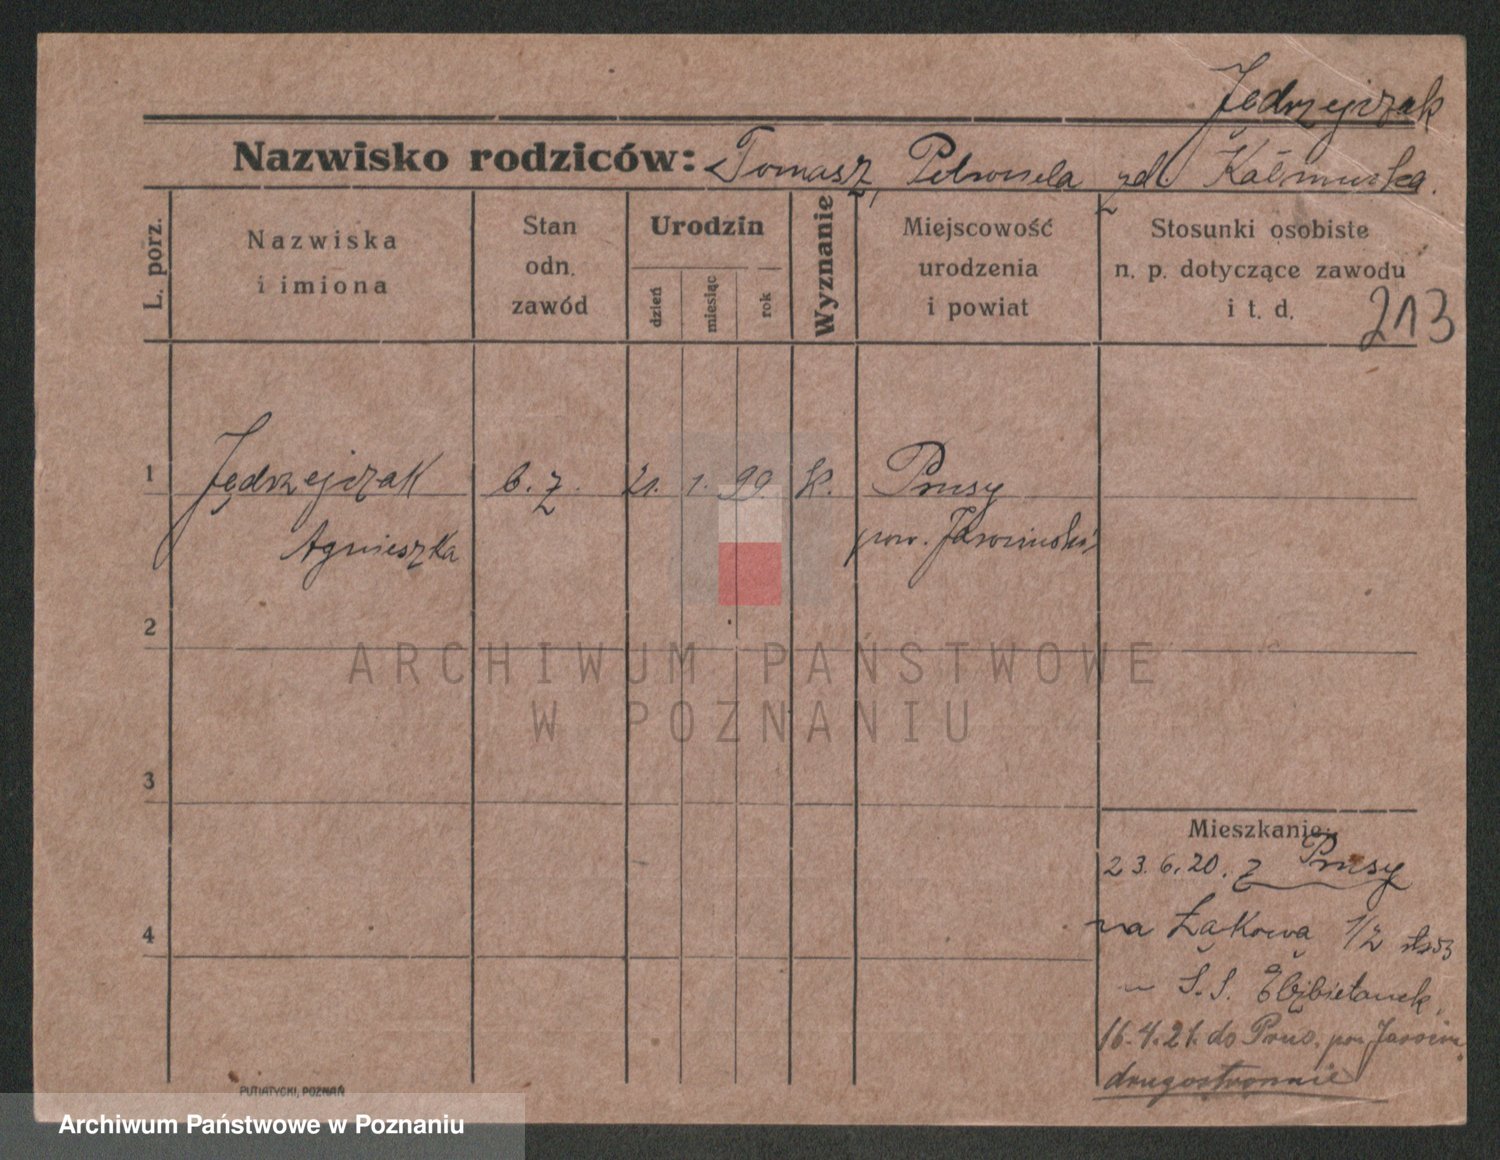 Jędrzejczak
Nazwisko rodziców: Tomasz, Petronela zd.
L. porz.
Nazwiska
i imiona
Stan
odn.
zawód
Urodzin
dzień
miesiąc
rok
Wyznanie
Miejscowość
urodzenia
i powiat
Stosunki osobiste
n. p. dotyczące zawodu
i t. d.
213
1 Jędrzejczak b. z. 21. 1. 99 k. Prusy
Agnieszka pow. Jarociński
2
ARCHIWUM PAŃSTWOWE
W POZNANIU
3
Mieszkanie:
23.6.20. z Prusy
4
na Łąkowa 1/2
S.S. Elżbietanek
16.4.21. do Prus. pow. Jarocin
drugostronnie
PUTIATYCKI, POZNAŃ
Archiwum Państwowe w Poznaniu